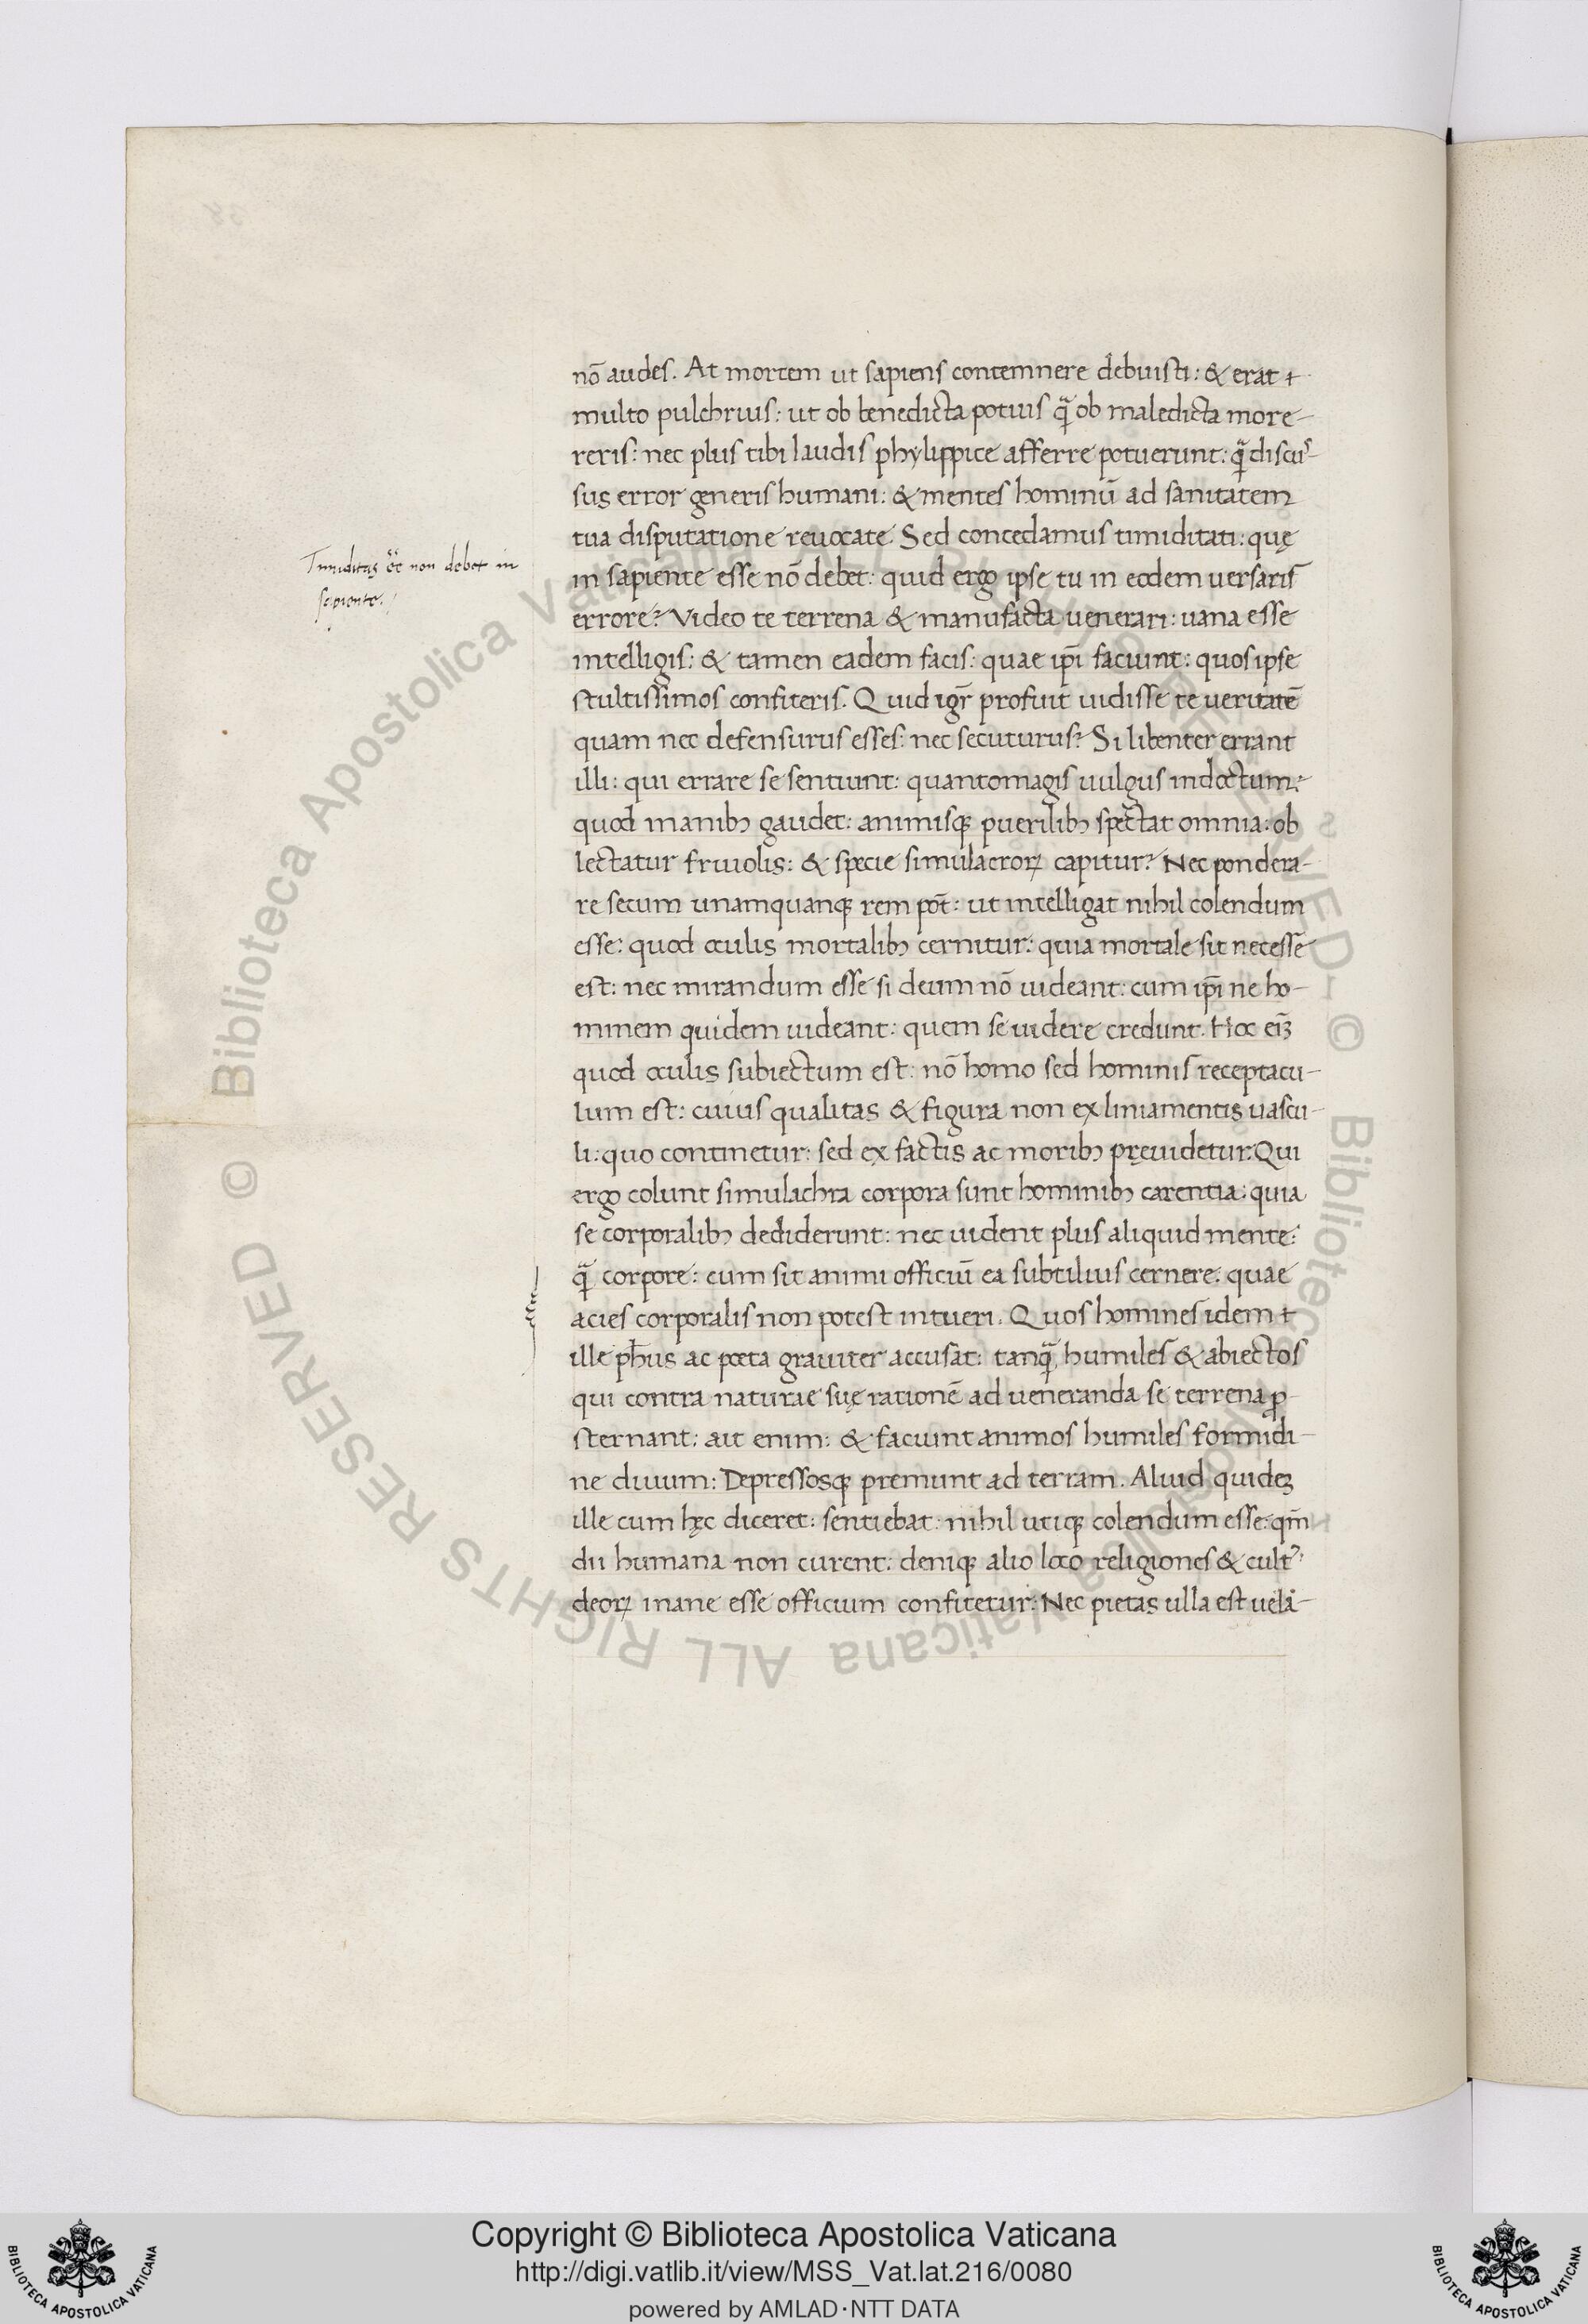 nō audes. At mortem ut sapiens contemnere debuisti: & erat
multo pulchrius: ut ob benedicta potius q̄ ob maledicta more-
reris: nec plus tibi laudis phylippice afferre potuerunt: q̄ discus-
sus error generis humani: & mentes hominū ad sanitatem
tua disputatione reuocate. Sed concedamus timiditati: quę
Timiditas ēē non debet in
sapiente.
in sapiente esse nō debet: quid ergo ipse tu in eodem uersaris
errore? Video te terrena & manufacta uenerari: uana esse
intelligis: & tamen eadem facis: quae ip̄i faciunt: quos ipse
stultissimos confiteris. Quid igr̄ profuit uidisse te veritatē
quam nec defensurus esses: nec secuturus? Si libenter errant
illi: qui errare se sentiunt: quantomagis uulgus indoctum?
quod manibꝫ gaudet: animisqꝫ puerilibꝫ spectat omnia: ob
lectatur friuolis: & specie simulacroꝝ capitur? Nec pondera-
re secum unamquanqꝫ rem pōt: ut intelligat nihil colendum
esse: quod oculis mortalibꝫ cernitur: quia mortale sit necesse
est: nec mirandum esse si deum nō uideant: cum ip̄i ne ho-
minem quidem uideant: quem se uidere credunt. Hoc eīꝫ
quod oculis subiectum est: nō homo sed hominis receptacu-
lum est: cuius qualitas & figura non ex liniamentis uascu-
li: quo continetur: sed ex factis ac moribꝫ pręuidetur. Qui
ergo colunt simulachra corpora sunt hominibꝫ carentia: quia
se corporalibꝫ dediderunt: nec uident plus aliquid mente:
q̄ corpore: cum sit animi officiū ea subtilius cernere: quae
acies corporalis non potest intueri. Quos homines idem
ille ph̄us ac poeta grauiter accusat: tanq̄ humiles & abiectos
qui contra naturae suę rationē ad ueneranda se terrena ꝓ
sternant: ait enim: & faciunt animos humiles formidi-
ne diuum: Depressosqꝫ premunt ad terram. Aliud quideꝫ
ille cum hęc diceret: sentiebat: nihil utiqꝫ colendum esse: qm̄
dii humana non curent: deniqꝫ alio loco religiones & cultꝰ
deoꝝ inane esse officium confitetur: Nec pietas ulla est uela-
Copyright © Biblioteca Apostolica Vaticana
http://digi.vatlib.it/view/MSS_Vat.lat.216/0080
powered by AMLAD·NTT DATA
BIBLIOTECA APOSTOLICA VATICANA
BIBLIOTECA APOSTOLICA VATICANA